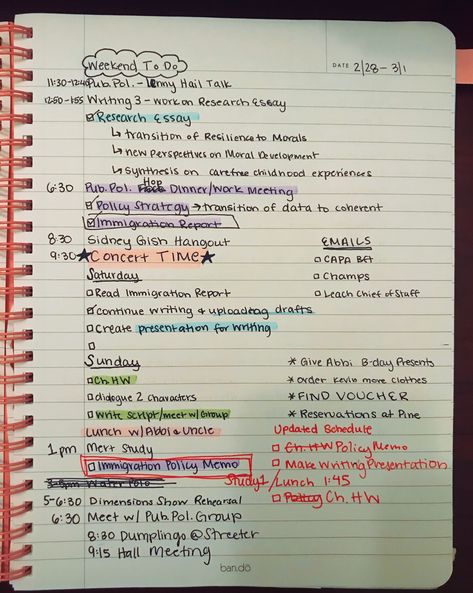 Weekend To Do
DATE 2/28-3/1
11:30-12:40 Pub. Pol. - Lenny Hail Talk
12:50-1:55 Writing 3 - work on Research Essay
Research Essay
↳ transition of Resilience to Morals
↳ new perspectives on Moral Development
↳ synthesis on carefree childhood experiences
6:30 Pub. Pol. Hop Dinner/Work Meeting
Policy Strategy → transition of data to coherent
Immigration Report
8:30 Sidney Gish Hangout
9:30 ★Concert TIME★
EMAILS
CAPA BFT
Champs
Leach Chief of Staff
Saturday
Read Immigration Report
continue writing & uploading drafts
Create presentation for writing
Sunday
Ch. HW
dialogue 2 characters
Write script/meet w/Group
Lunch w/Abbi & Uncle
* Give Abbi B-day Presents
* Order Kevin more clothes
* FIND VOUCHER
* Reservations at Pine
Updated Schedule
Ch. HW Policy Memo
Make Writing Presentation
Study1/Lunch 1:45
Policy Ch. HW
1pm Mert Study
Immigration Policy Memo
5-6:30 Dimensions Show Rehearsal
6:30 Meet w/ Pub. Pol. Group
8:30 Dumplings @ Streeter
9:15 Hall Meeting
ban.dō